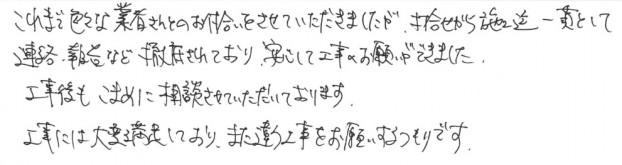 これまで色々な業者さんとのお付合いをさせていただきましたが、打合せから施工迄一貫として
連絡・報告など徹底されており、安心して工事のお願いができました。
工事後も、こまめに相談させていただいております。
工事には大変満足しており、また違う工事をお願いするつもりです。